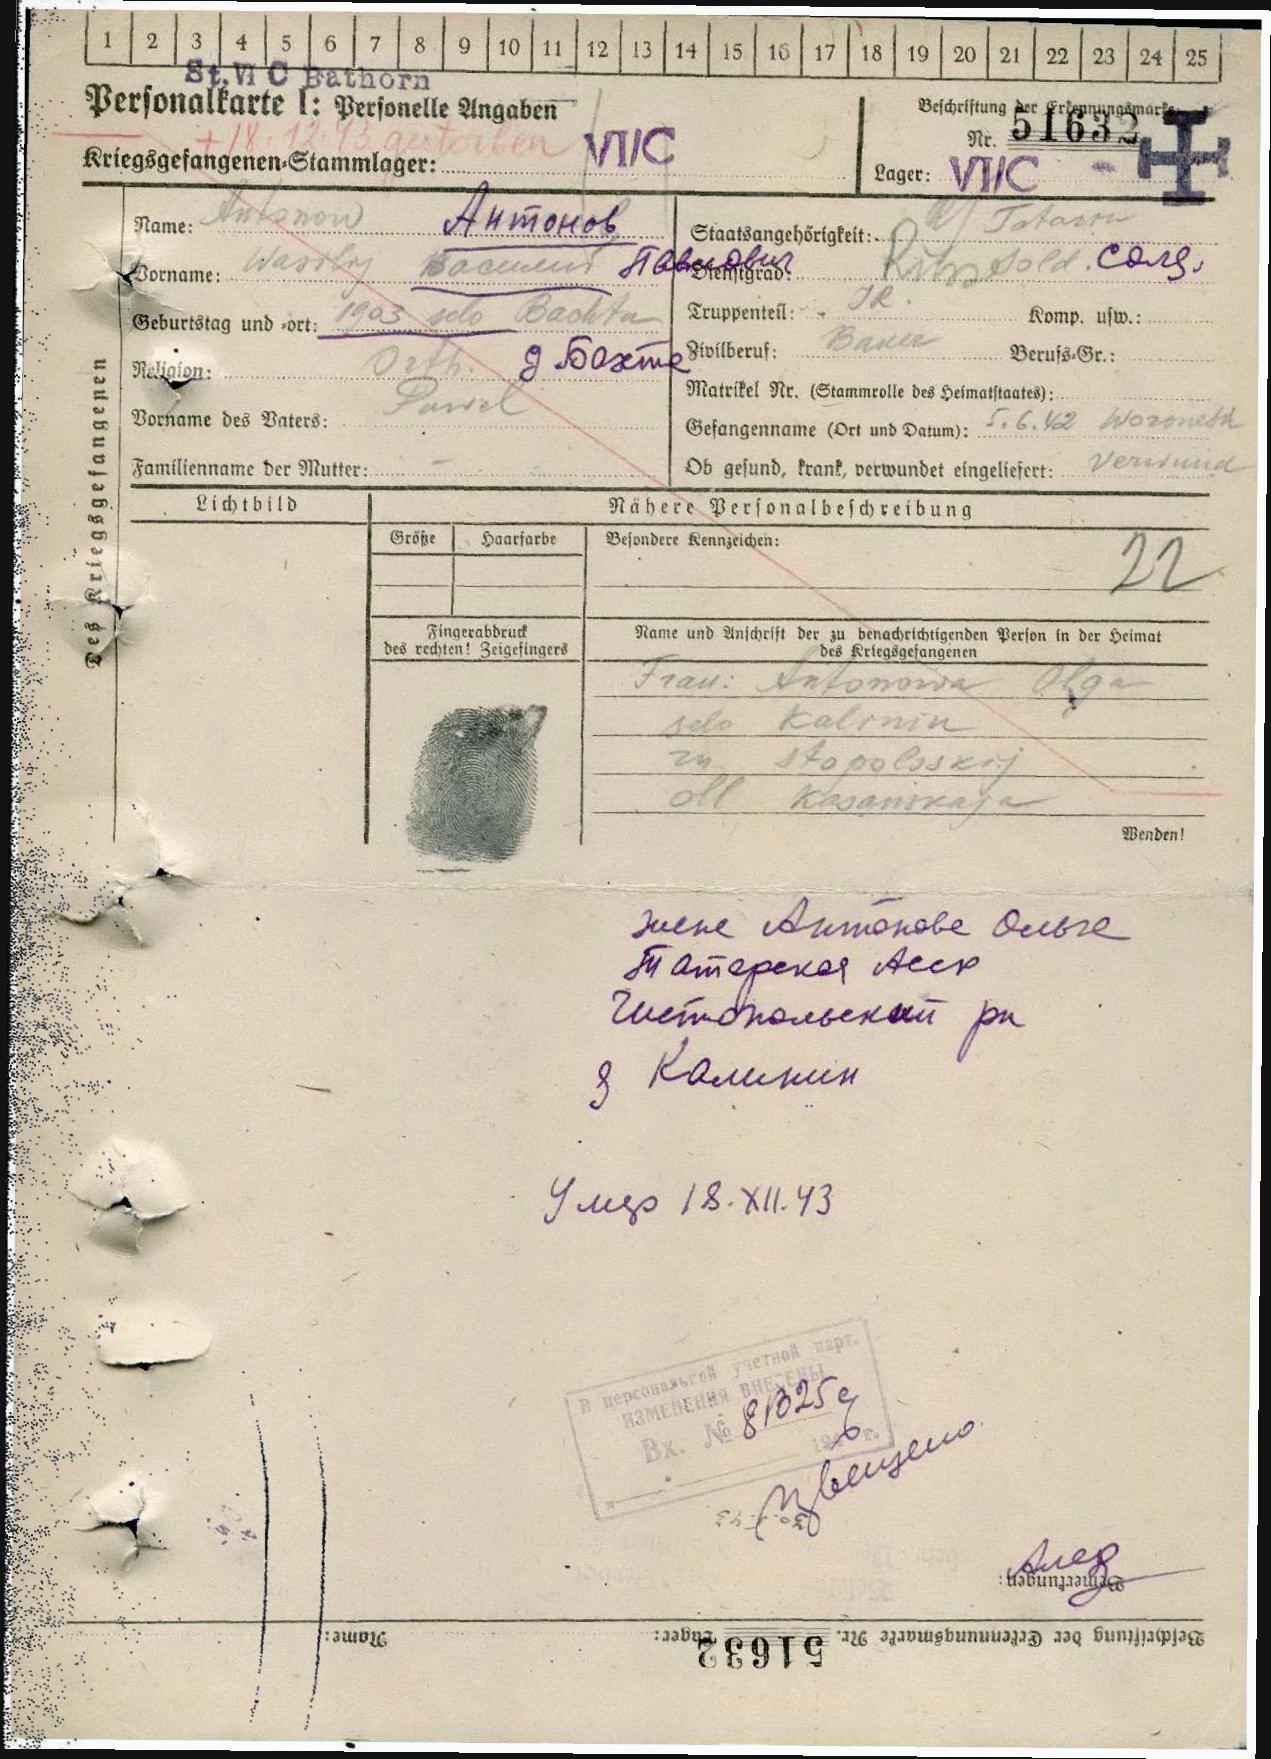 1 2 3 4 5 6 7 8 9 10 11 12 13 14 15 16 17 18 19 20 21 22 23 24 25
St. VI C Bathorn
Personalkarte I: Personelle Angaben
+ 18.12.43 gestorben
Kriegsgefangenen-Stammlager: VI/C
Beschriftung der Erkennungsmarke
Nr. 51632
Lager: VI/C -
Des Kriegsgefangenen
Name: Antonow Антонов
Vorname: Wassilij Василий Павлович
Geburtstag und -ort: 1903 selo Bachta
д Бахта
Religion: Orth.
Vorname des Vaters: Pawel
Familienname der Mutter: -
Staatsangehörigkeit: Tatare
Dienstgrad: Sold. солд.
Truppenteil: IR. Komp. usw.:
Zivilberuf: Bauer Berufs-Gr.:
Matrikel Nr. (Stammrolle des Heimatstaates):
Gefangenname (Ort und Datum): 5.6.42 Woronesh
Ob gesund, krank, verwundet eingeliefert: verwund
Lichtbild
Nähere Personalbeschreibung
Größe Haarfarbe Besondere Kennzeichen:
22
Fingerabdruck
des rechten! Zeigefingers
Name und Anschrift der zu benachrichtigenden Person in der Heimat
des Kriegsgefangenen
Frau: Antonowa Olga
selo Kalinin
stopolsskij
Kasanskaja
Wenden!
жене Антонове Ольге
Татарская Асср
Чистопольский рн
д Калинин
Умер 18.XII.43
В персональной учетной карт.
ИЗМЕНЕНИЯ ВНЕСЕНЫ
Вх. № 81025
Извещено
Bemerkungen:
Beschriftung der Erkennungsmarke Nr. 51632 Lager: Name: